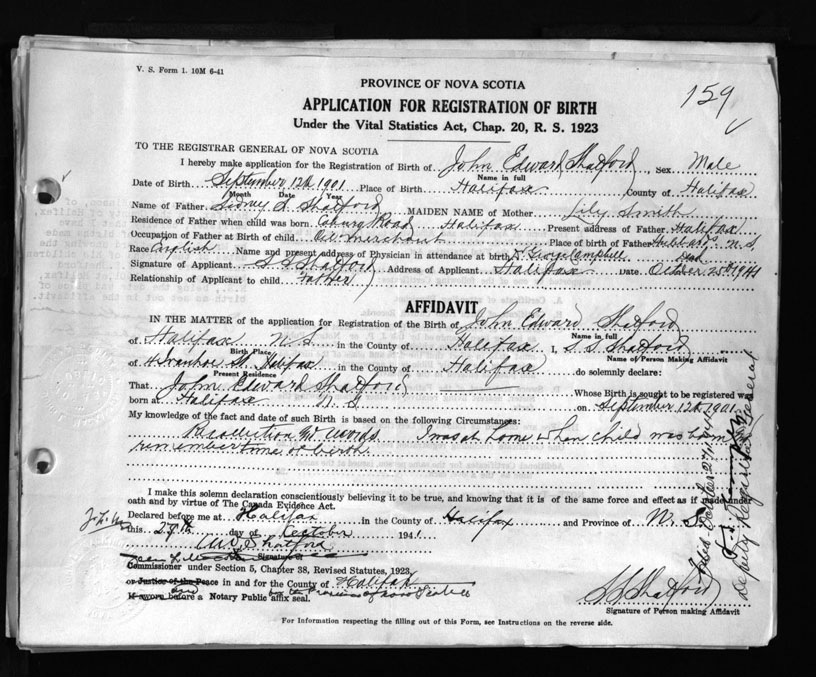 V. S. Form 1. 10M 6-41
159
PROVINCE OF NOVA SCOTIA
APPLICATION FOR REGISTRATION OF BIRTH
Under the Vital Statistics Act, Chap. 20, R. S. 1923
TO THE REGISTRAR GENERAL OF NOVA SCOTIA
I hereby make application for the Registration of Birth of John Edward Shatford Sex Male
Name in full
Date of Birth September 12th 1901 Place of Birth Halifax County of Halifax
Month Date Year
Name of Father Sidney S. Shatford MAIDEN NAME of Mother Lily Smith
Residence of Father when child was born Coburg Road Halifax Present address of Father Halifax
Occupation of Father at Birth of child Oil merchant Place of birth of Father Hubbards N.S.
Race English Name and present address of Physician in attendance at birth Dr. George Campbell Dead
Signature of Applicant S S Shatford Address of Applicant Halifax Date October 25th 1941
Relationship of Applicant to child Father
AFFIDAVIT
IN THE MATTER of the application for Registration of the Birth of John Edward Shatford
Name in full
of Halifax N S in the County of Halifax I, S S Shatford
Birth Place Name of Person Making Affidavit
of 4 Ivanhoe St. Halifax in the County of Halifax do solemnly declare:
Present Residence
That John Edward Shatford Whose Birth is sought to be registered was
born at Halifax N S on September 12th 1901
My knowledge of the fact and date of such Birth is based on the following Circumstances:
I was at home when child was born
remember time of birth
I make this solemn declaration conscientiously believing it to be true, and knowing that it is of the same force and effect as if made under
oath and by virtue of The Canada Evidence Act.
Declared before me at Halifax in the County of Halifax and Province of N. S.
this day of October 1941
Shatford
Signature
Commissioner under Section 5, Chapter 38, Revised Statutes, 1923,
or Justice of the Peace in and for the County of Halifax
If sworn before a Notary Public affix seal.
and for the Province of Nova Scotia
S S Shatford
Signature of Person making Affidavit
For Information respecting the filling out of this Form, see Instructions on the reverse side.
Deputy Registrar General